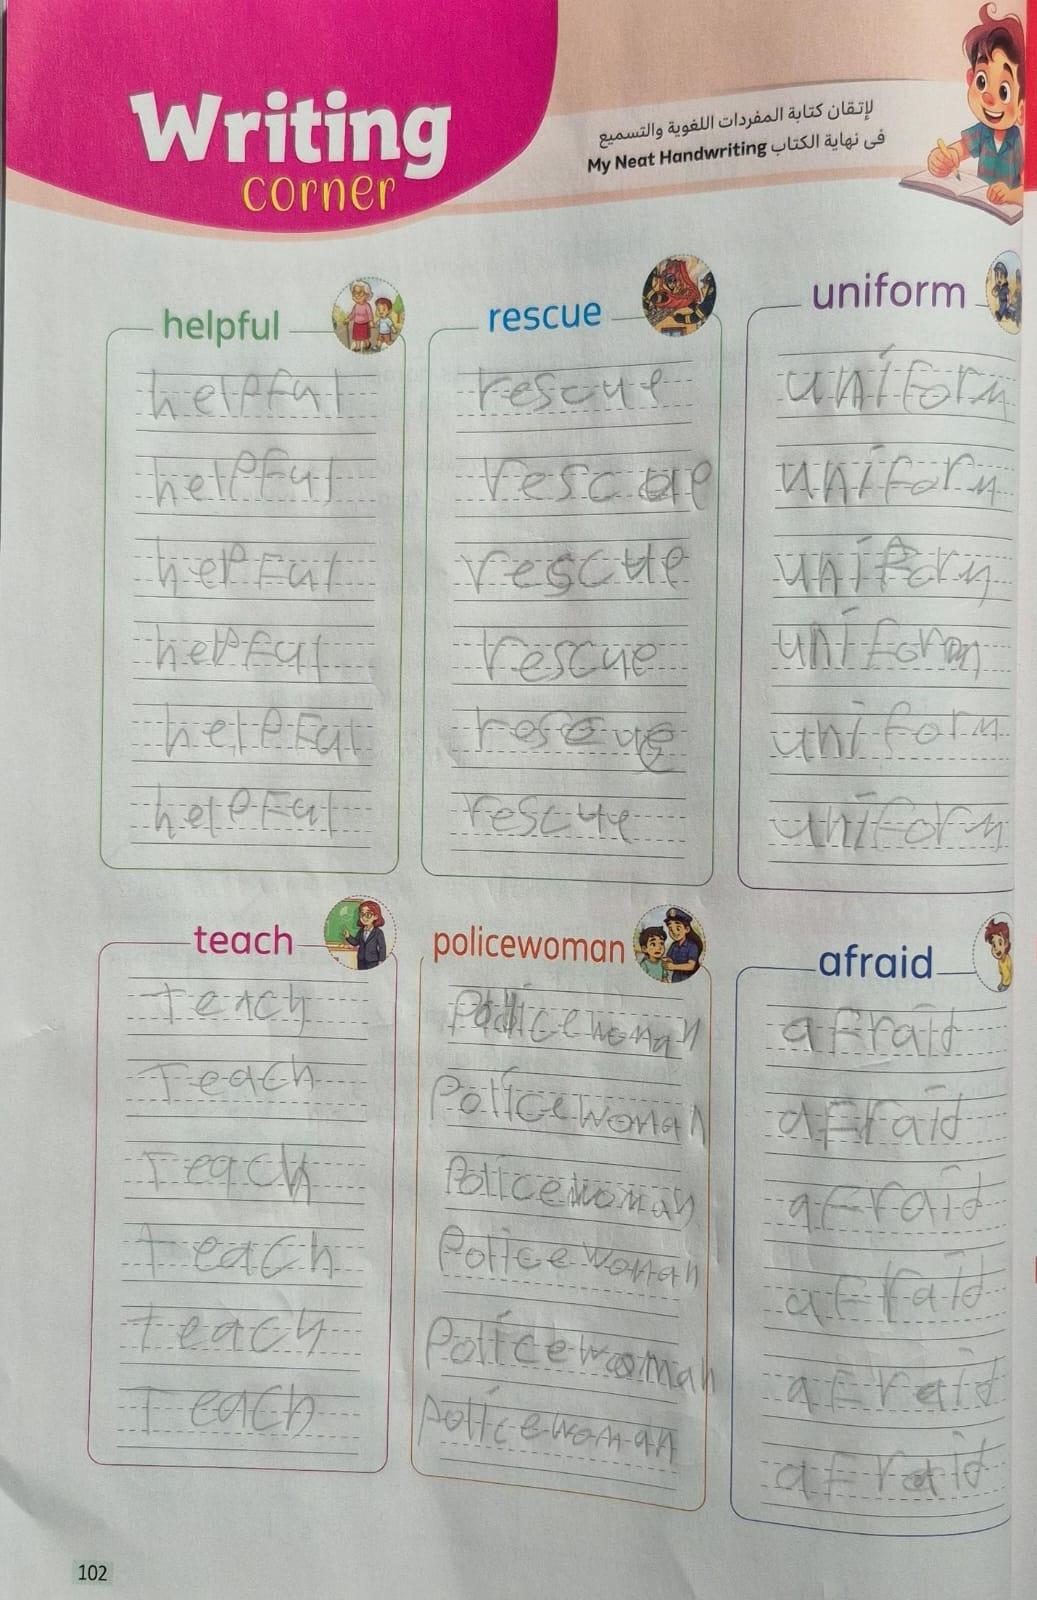 Writing
corner
لإتقان كتابة المفردات اللغوية والتسميع
فى نهاية الكتاب My Neat Handwriting
helpful
helpful
helpful
helpful
helpful
helpful
helpful
rescue
rescue
rescue
rescue
rescue
rescue
rescue
uniform
uniform
uniform
uniform
uniform
uniform
uniform
teach
Teach
Teach
Teach
Teach
teach
Teach
policewoman
Policewoman
Policewoman
Policewoman
Policewoman
Policewoman
policewoman
afraid
aFraid
aFraid
aFraid
aFraid
aFraid
aFraid
102